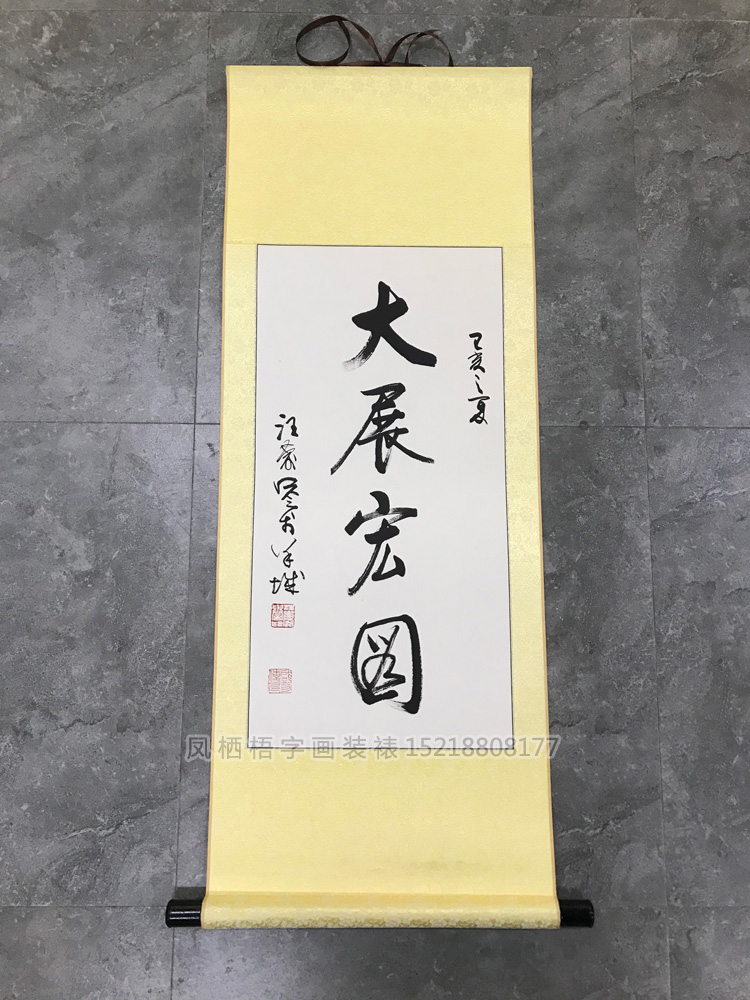 己亥之夏
大展宏图
于羊城
凤栖梧字画装裱15218808177